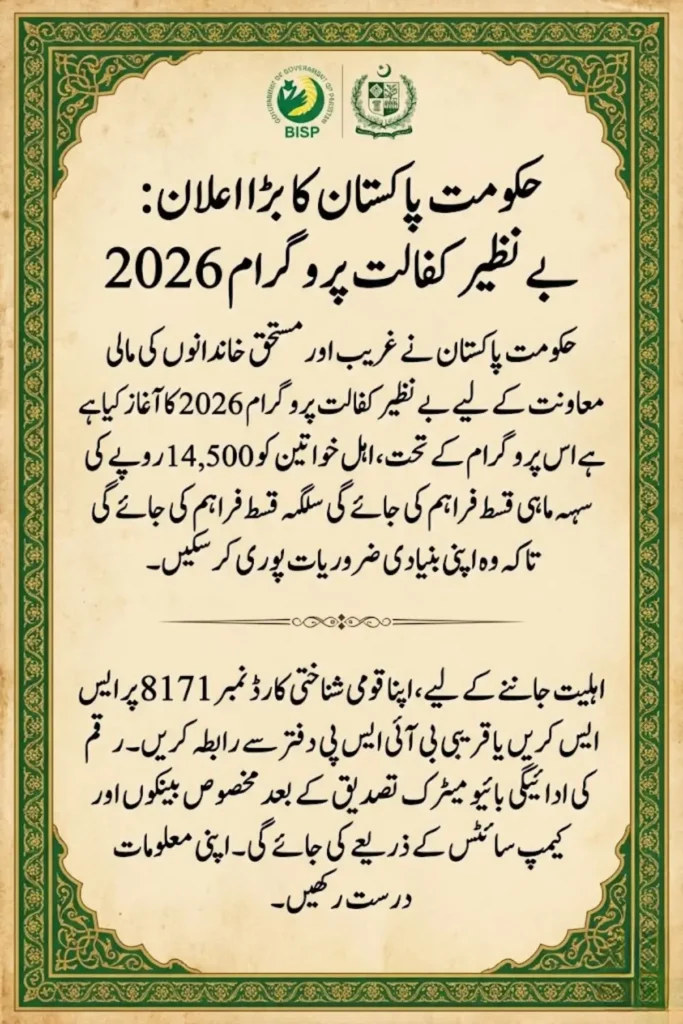 GOVERNMENT OF PAKISTAN
BISP
حکومت پاکستان کا بڑا اعلان:
بے نظیر کفالت پروگرام 2026
حکومت پاکستان نے غریب اور مستحق خاندانوں کی مالی
معاونت کے لیے بے نظیر کفالت پروگرام 2026 کا آغاز کیا ہے
ہے اس پروگرام کے تحت، اہل خواتین کو 14,500 روپے کی
سہہ ماہی قسط فراہم کی جائے گی سلگہہ قسط فراہم کی جائے گی
تاکہ وہ اپنی بنیادی ضروریات پوری کر سکیں۔
اہلیت جاننے کے لیے، اپنا قومی شناختی کارڈ نمبر 8171 پر ایس
ایس کریں یا قریبی بی آئی ایس پی دفتر سے رابطہ کریں۔ رقم
کی ادائیگی بائیو میٹرک تصدیق کے بعد مخصوص بینکوں اور
کیمپ سائٹس کے ذریعے کی جائے گی۔ اپنی معلومات
درست رکھیں۔